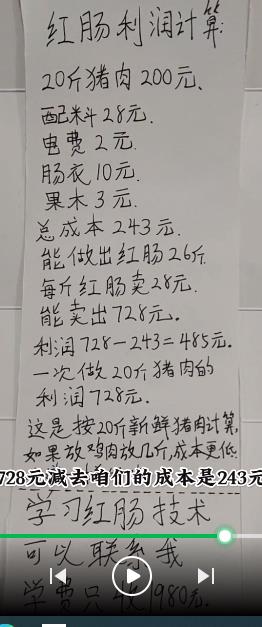 红肠利润计算:
20斤猪肉200元、
配料28元.
电费2元.
肠衣10元.
果木3元.
总成本243元.
能做出红肠26斤.
每斤红肠卖28元.
能卖出728元。
利润728-243=485元.
一次做20斤猪肉的
利润728元.
这是按20斤新鲜猪肉计算,
如果放鸡肉放几斤,成本更低
728元减去咱们的成本是243元
学习红肠技术
可以联系我
学费只收1980元.